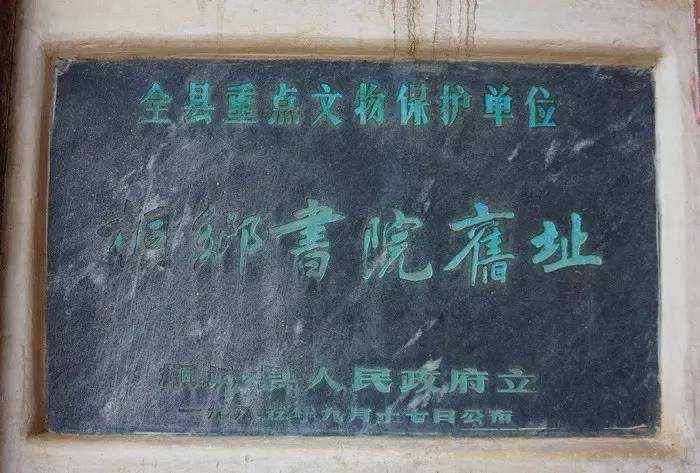 全县重点文物保护单位
桐鄉書院舊址
桐城县人民政府立
年九月十七日公布